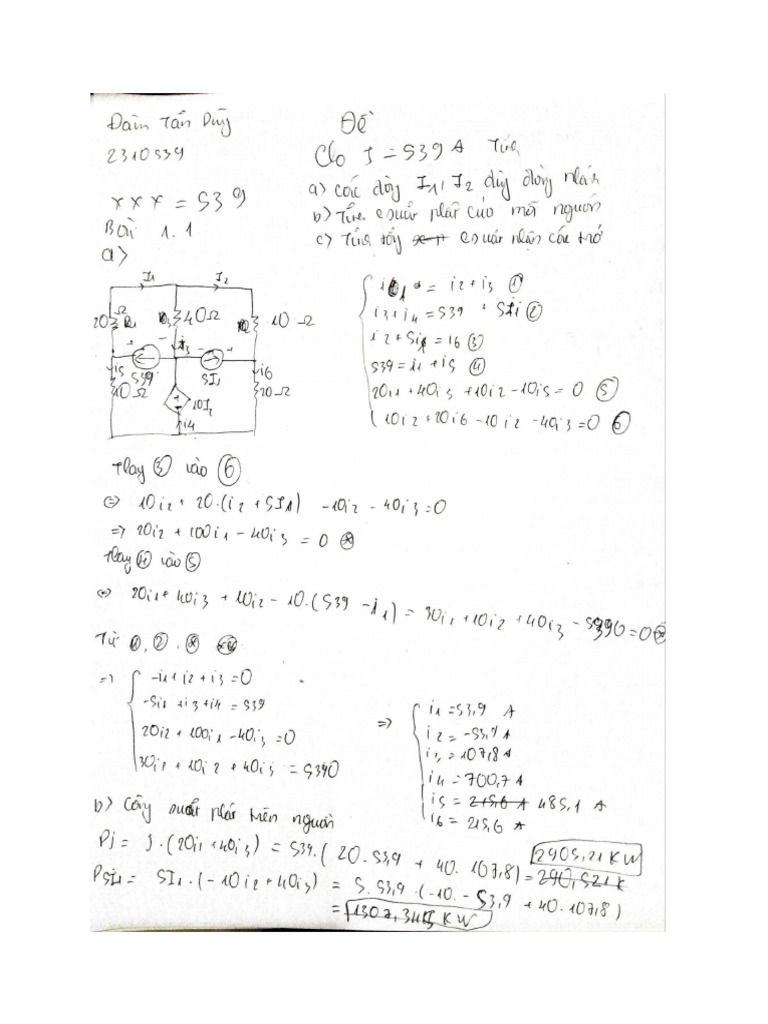 Đàm Tấn Dũng
2310539
xxx = 539
Bài 1.1
a)
Đề
Cho J = 539 A Tính
a) các dòng I1, I2 dùng dòng nhánh
b) Tính c suất phát của mỗi nguồn
c) Tính tổng c suất nhận các trở
I1
I2
20Ω
R1
R3
40Ω
10 Ω
i3
i5
539
5I1
i6
10Ω
10I2
20Ω
i4
i1 = i2 + i3 ①
i3 + i4 = 539 + 5I1 ②
i2 + 5i1 = i6 ③
539 = i1 + i5 ④
20i1 + 40i3 + 10i2 - 10i5 = 0 ⑤
10i2 + 20i6 - 10i2 - 40i3 = 0 ⑥
Thay ③ vào ⑥
⇔ 10i2 + 20.(i2 + 5I1) - 10i2 - 40i3 = 0
=> 20i2 + 100i1 - 40i3 = 0
Thay ④ vào ⑤
⇔ 20i1 + 40i3 + 10i2 - 10.(539 - i1) = 30i1 + 10i2 + 40i3 - 5390 = 0
Từ ①, ②,
=>
-i1 + i2 + i3 = 0
-5i1 + i3 + i4 = 539
20i2 + 100i1 - 40i3 = 0
30i1 + 10i2 + 40i3 = 5390
=>
i1 = 53,9 A
i2 = -53,9 A
i3 = 107,8 A
i4 = 700,7 A
i5 = 215,6 A 485,1 A
i6 = 215,6 A
b) Công suất phát trên nguồn
Pj = J.(20i1 + 40i3) = 539.(20.53,9 + 40.107,8) = 290,521k 2905,21 KW
P5i1 = 5I1.(-10i2 + 40i3) = 5.53,9.(-10.-53,9 + 40.107,8)
= 1307,3445 KW